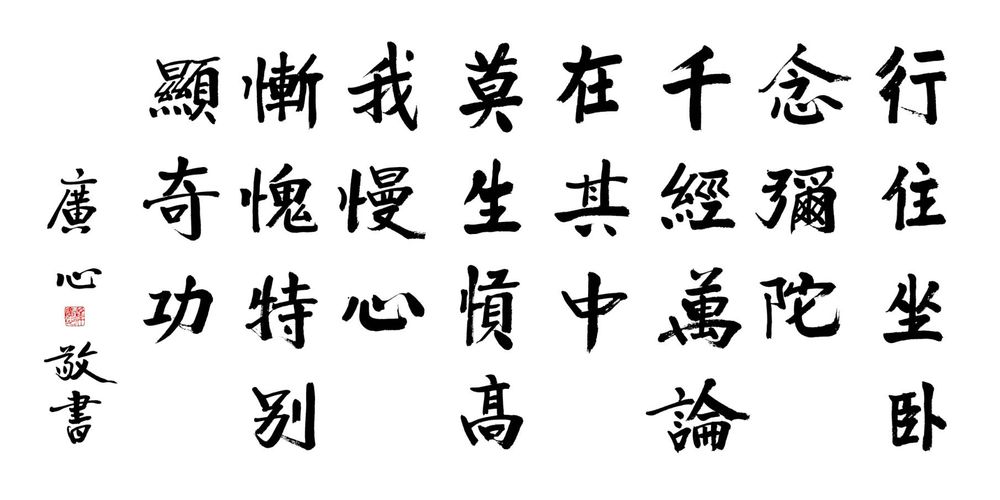 行住坐卧
念彌陀
千經萬論
在其中
莫生憤高
我慢心
慚愧特别
顯奇功
廣心敬書